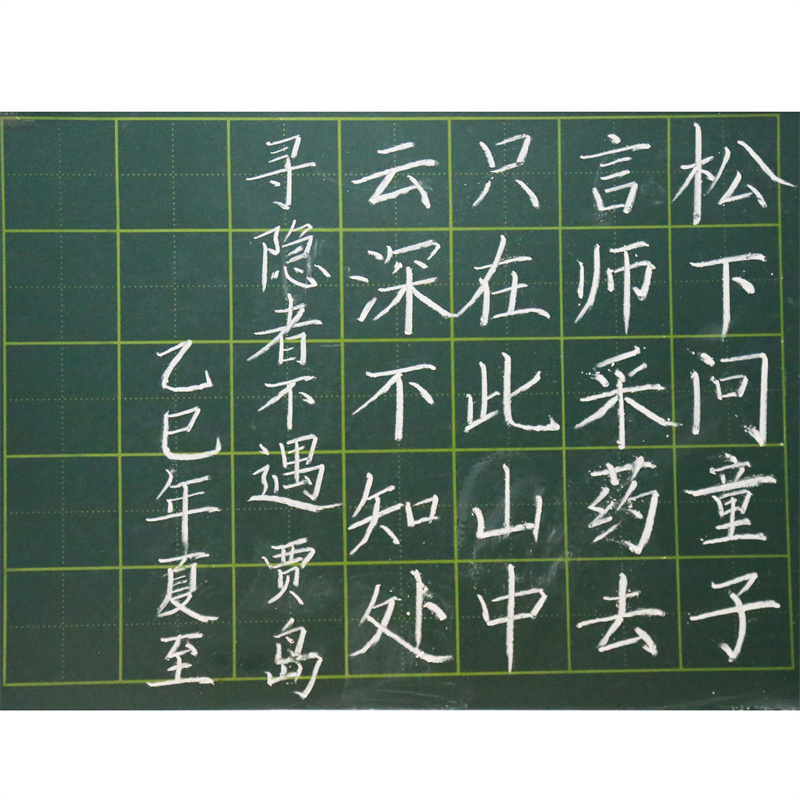 松下问童子
言师采药去
只在此山中
云深不知处
寻隐者不遇 贾岛
乙巳年夏至